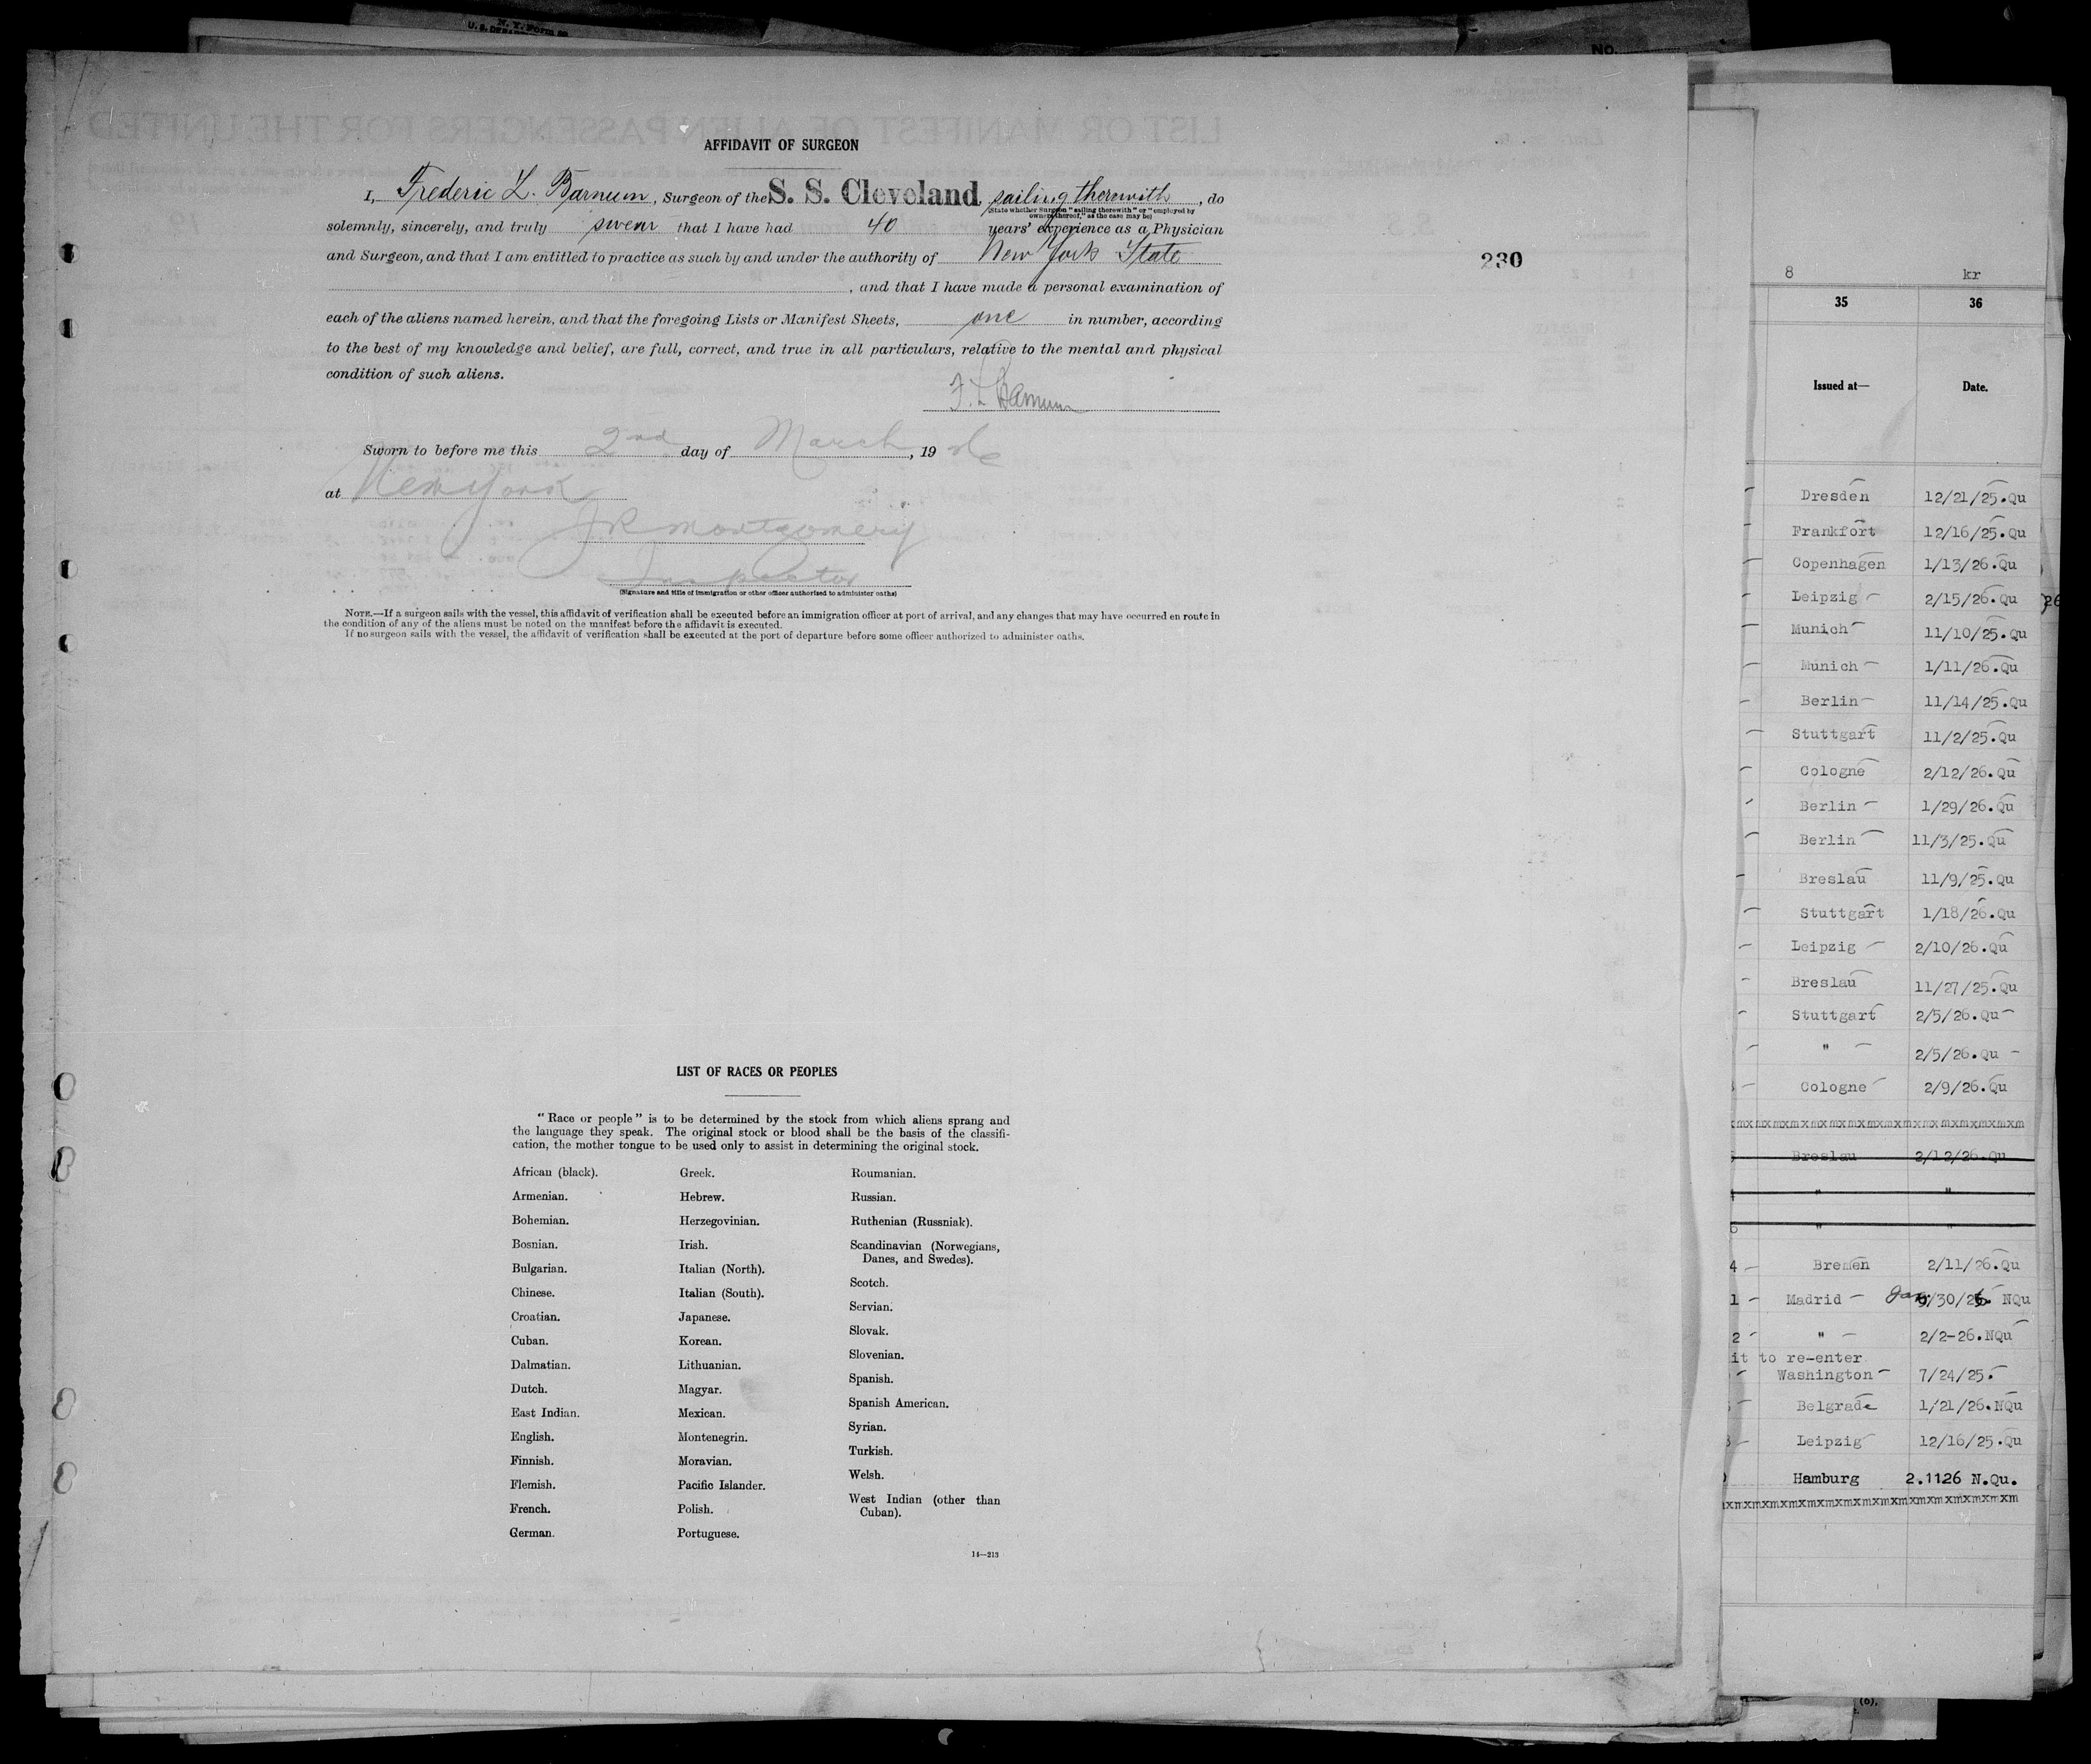 N. Y. Form 89
NO.
AFFIDAVIT OF SURGEON
I, Frederic L. Barnum, Surgeon of the S. S. Cleveland, sailing therewith, do
(State whether Surgeon "sailing therewith" or "employed by
owners thereof," as the case may be)
solemnly, sincerely, and truly swear that I have had 40 years' experience as a Physician
and Surgeon, and that I am entitled to practice as such by and under the authority of New York State
, and that I have made a personal examination of
each of the aliens named herein, and that the foregoing Lists or Manifest Sheets, one in number, according
to the best of my knowledge and belief, are full, correct, and true in all particulars, relative to the mental and physical
condition of such aliens.
F. L. Barnum
Sworn to before me this 2nd day of March, 1926
at New York
J R Montgomery
Inspector
(Signature and title of immigration or other officer authorized to administer oaths)
NOTE.—If a surgeon sails with the vessel, this affidavit of verification shall be executed before an immigration officer at port of arrival, and any changes that may have occurred en route in
the condition of any of the aliens must be noted on the manifest before the affidavit is executed.
If no surgeon sails with the vessel, the affidavit of verification shall be executed at the port of departure before some officer authorized to administer oaths.
230
LIST OF RACES OR PEOPLES
"Race or people" is to be determined by the stock from which aliens sprang and
the language they speak. The original stock or blood shall be the basis of the classifi-
cation, the mother tongue to be used only to assist in determining the original stock.
African (black).
Armenian.
Bohemian.
Bosnian.
Bulgarian.
Chinese.
Croatian.
Cuban.
Dalmatian.
Dutch.
East Indian.
English.
Finnish.
Flemish.
French.
German.
Greek.
Hebrew.
Herzegovinian.
Irish.
Italian (North).
Italian (South).
Japanese.
Korean.
Lithuanian.
Magyar.
Mexican.
Montenegrin.
Moravian.
Pacific Islander.
Polish.
Portuguese.
Roumanian.
Russian.
Ruthenian (Russniak).
Scandinavian (Norwegians,
Danes, and Swedes).
Scotch.
Servian.
Slovak.
Slovenian.
Spanish.
Spanish American.
Syrian.
Turkish.
Welsh.
West Indian (other than
Cuban).
14—213
8 kr
35 36
Issued at— Date.
Dresden 12/21/25.Qu
Frankfort 12/16/25.Qu
Copenhagen 1/13/26.Qu
Leipzig 2/15/26.Qu
Munich 11/10/25.Qu
Munich 1/11/26.Qu
Berlin 11/14/25.Qu
Stuttgart 11/2/25.Qu
Cologne 2/12/26.Qu
Berlin 1/29/26.Qu
Berlin 11/3/25.Qu
Breslau 11/9/25.Qu
Stuttgart 1/18/26.Qu
Leipzig 2/10/26.Qu
Breslau 11/27/25.Qu
Stuttgart 2/5/26.Qu
" 2/5/26.Qu
Cologne 2/9/26.Qu
xmxmxmxmxmxmxmxmxmxmxmxmxmxmxm
Breslau 2/12/26.Qu
" "
" "
4 Bremen 2/11/26.Qu
1 Madrid Jan /30/26 NQu
2 " 2/2-26.NQu
it to re-enter
Washington 7/24/25.
Belgrade 1/21/26.NQu
Leipzig 12/16/25.Qu
Hamburg 2.1126 N.Qu.
xmxmxmxmxmxmxmxmxmxmxmxmxmxmxm
(6).